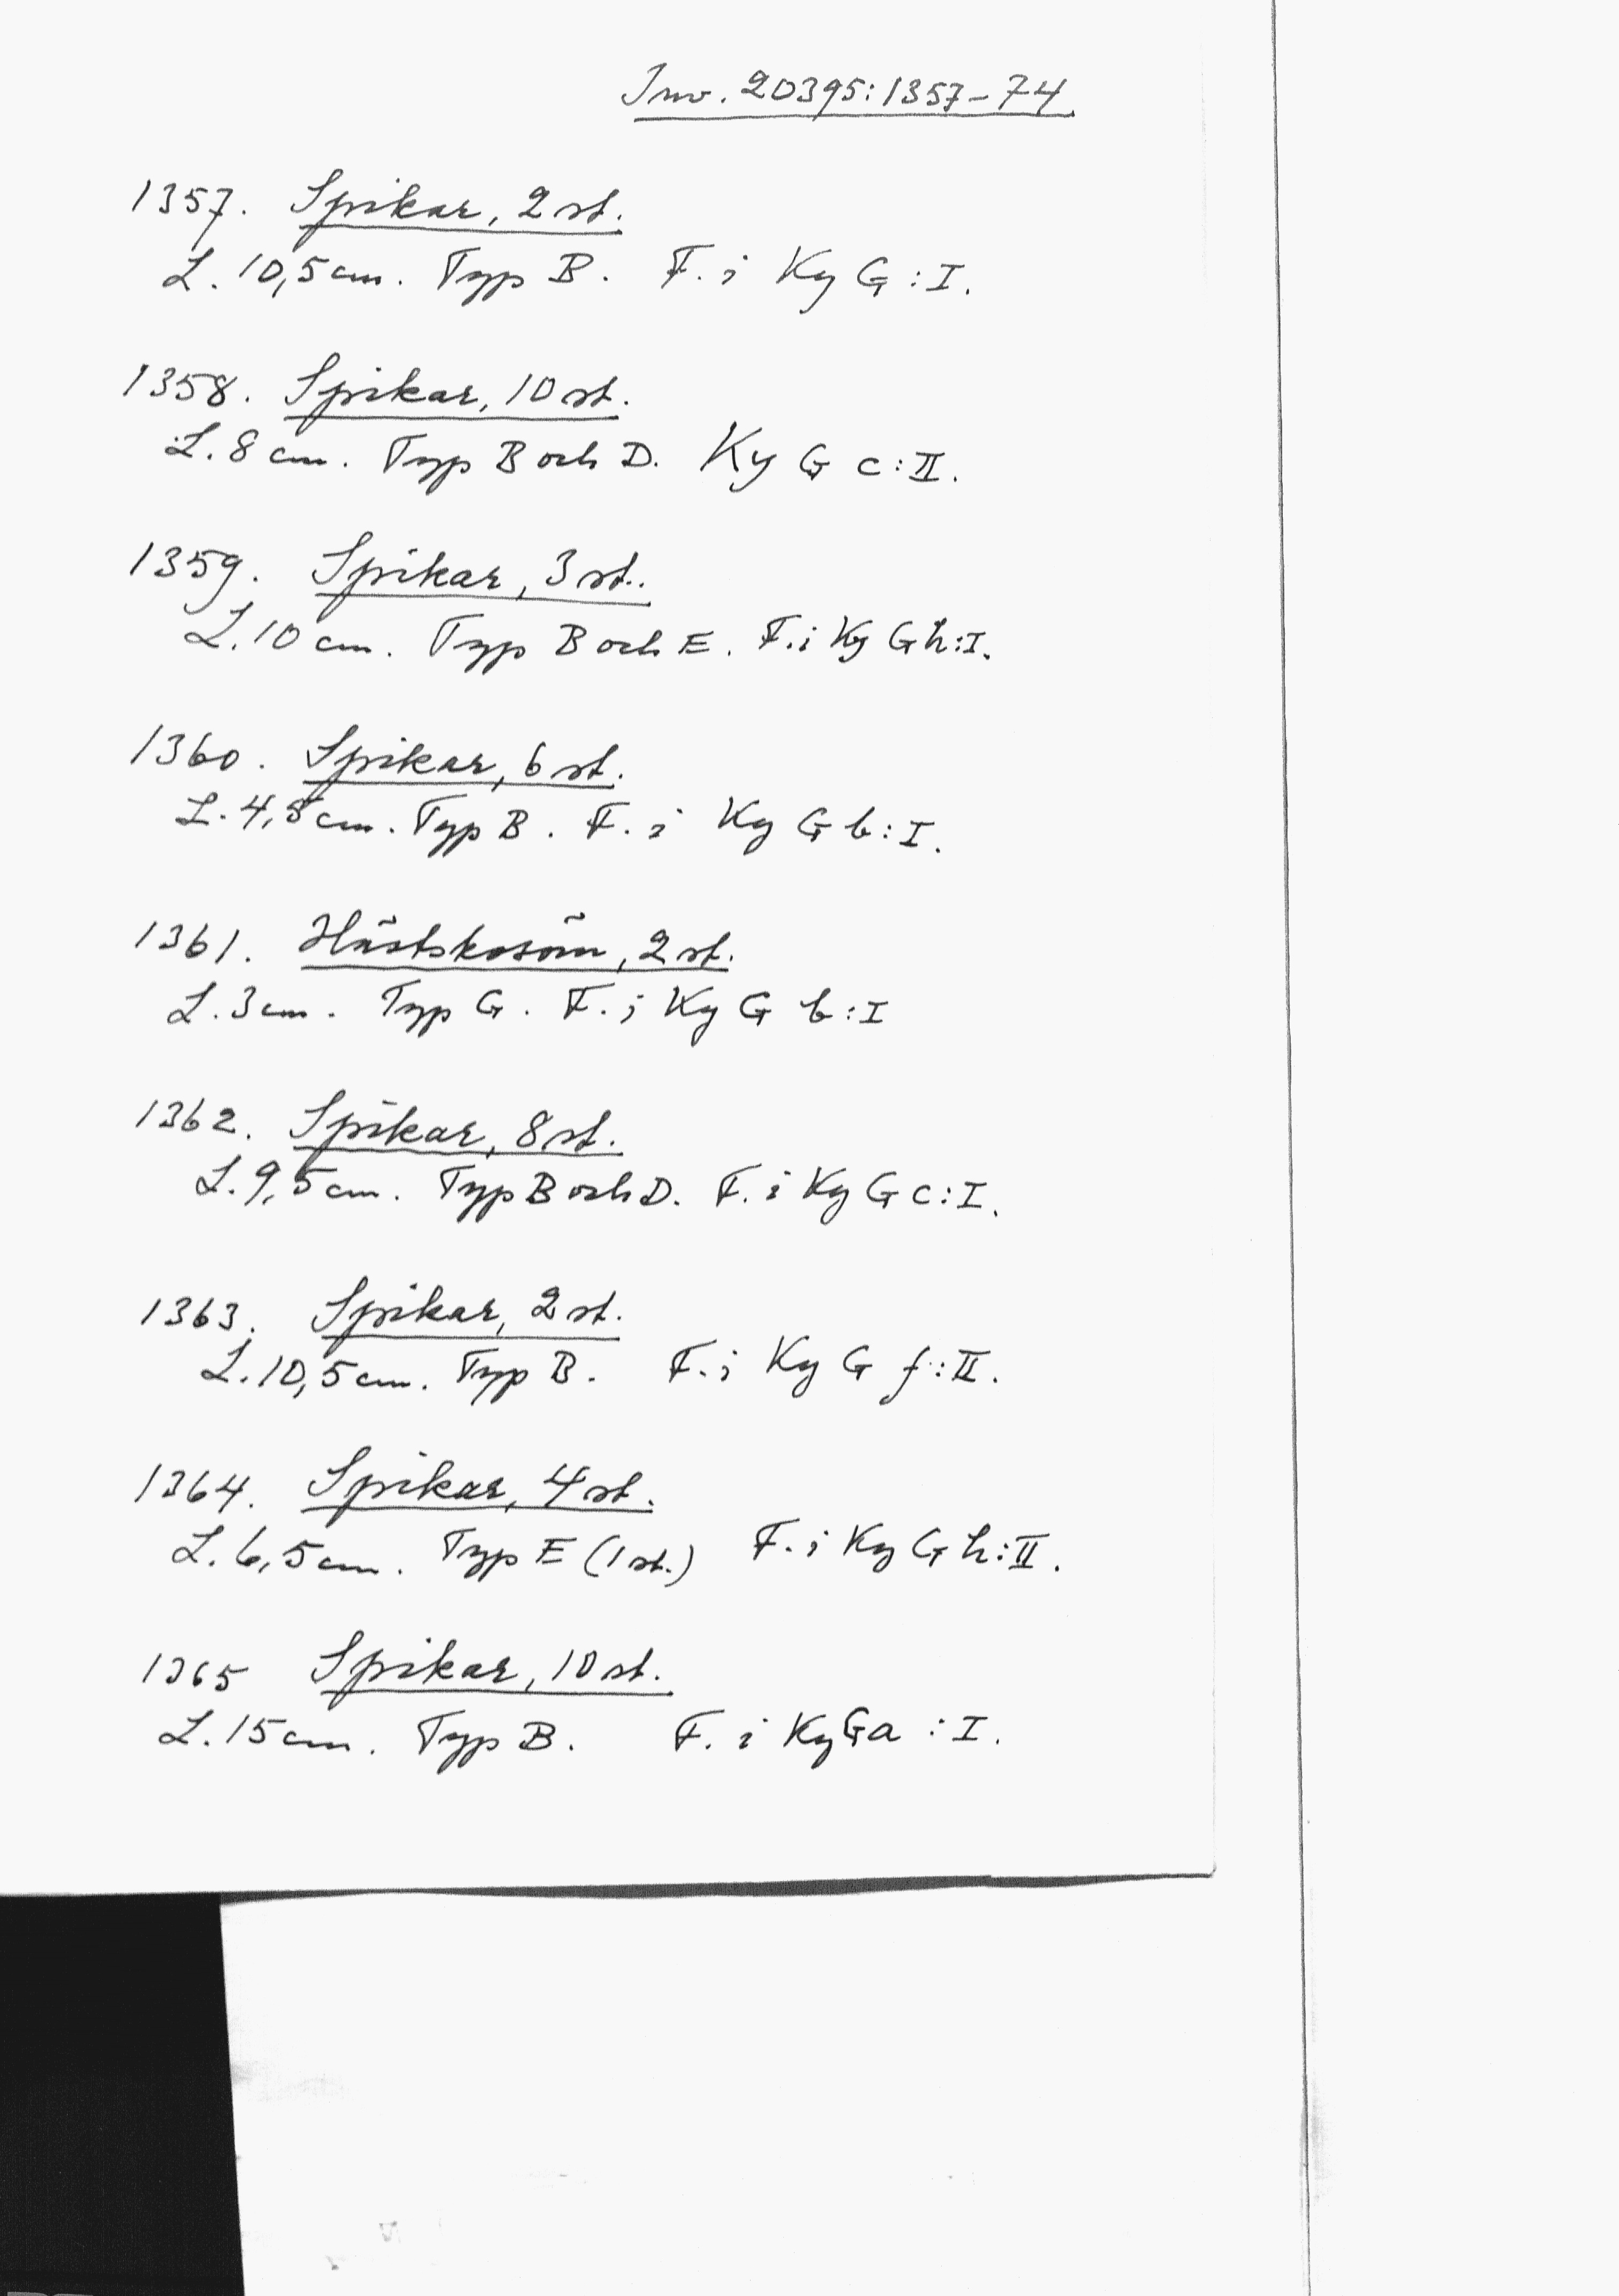 Inv. 20395:1357-74.
1357. Spikar, 2 st.
L. 10,5 cm. Typ B. F. i Ky G : I.
1358. Spikar, 10 st.
L. 8 cm. Typ B och D. Ky G c : II.
1359. Spikar, 3 st.
L. 10 cm. Typ B och E. F. i Ky G h : I.
1360. Spikar, 6 st.
L. 4,5 cm. Typ B. F. i Ky G b : I.
1361. Hästskosöm, 2 st.
L. 3 cm. Typ G. F. i Ky G b : I
1362. Spikar, 8 st.
L. 9,5 cm. Typ B och D. F. i Ky G c : I.
1363. Spikar, 2 st.
L. 10,5 cm. Typ B. F. i Ky G f : II.
1364. Spikar, 4 st.
L. 6,5 cm. Typ E (1 st.) F. i Ky G h : II.
1365 Spikar, 10 st.
L. 15 cm. Typ B. F. i Ky G a : I.